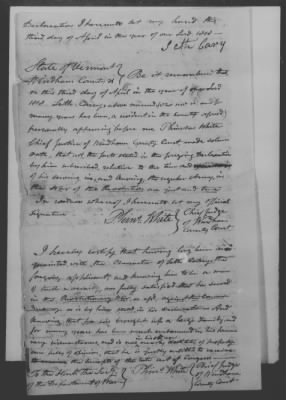 Declaration I hereunto set my hand this
third day of April in the year of our Lord 1818.
Seth Cary
State of Vermont
Windham County ss Be it remembered that
on this third day of April in the year of our Lord
1818. Seth Cary above named who now is and for
many years has been, a resident in the county aforesaid
personally appearing before me Phineas White
Chief Justice of Windham County Court made solemn
oath, that all the facts stated in the foregoing declaration
by him subscribed, relative to the time and
of his serving in, and leaving the regular Army, in
the War of the Revolution are just and true.
In witness whereof I hereunto set my official
signature
Phin. White Chief Judge
of Windham
County Court
I hereby certify that having long been
acquainted with the Character of Seth Cary the
foregoing applicant, and knowing him to be a man
of truth &amp; veracity, am fully satisfied that he served
in the Revolutionary War, as aft. against the Common
Enemy, as is by him stated in his declaration And
knowing that he has
for many years has been much
circumstances, and is now nearly destitute of property
am fully of opinion, that he is justly entitled to receive
the benefits of the late act of Congress
To the Honble the Secy
of the Department of War
Phin. White Chief Judge
of Windham
County Court